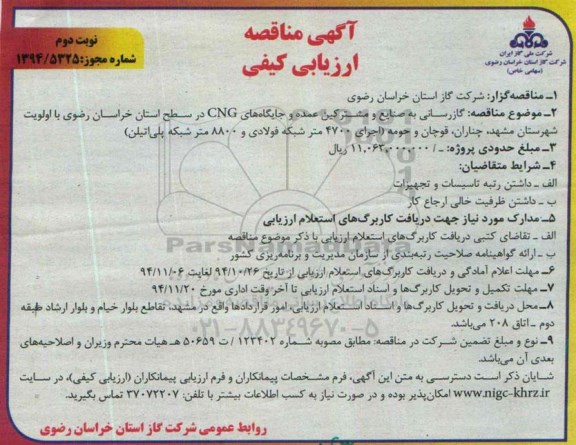 آگهی مناقصه
ارزیابی کیفی
نوبت دوم
شماره مجوز: ۱۳۹۴/۵۳۲۵
شرکت ملی گاز ایران
شرکت گاز استان خراسان رضوی
(سهامی خاص)
۱ـ مناقصه‌گزار: شرکت گاز استان خراسان رضوی
۲ـ موضوع مناقصه: گازرسانی به صنایع و مشترکین عمده و جایگاه‌های CNG در سطح استان خراسان رضوی با اولویت
شهرستان مشهد، چناران، قوچان و حومه (اجرای ۴۷۰۰ متر شبکه فولادی و ۸۸۰۰ متر شبکه پلی‌اتیلن)
۳ـ مبلغ حدودی پروژه: ـ/۱۱,۰۶۲,۰۰۰,۰۰۰ ریال
۴ـ شرایط متقاضیان:
الف ـ داشتن رتبه تاسیسات و تجهیزات
ب ـ داشتن ظرفیت خالی ارجاع کار
۵ـ مدارک مورد نیاز جهت دریافت کاربرگ‌های استعلام ارزیابی
الف ـ تقاضای کتبی دریافت کاربرگ‌های استعلام ارزیابی با ذکر موضوع مناقصه
ب ـ ارائه گواهینامه صلاحیت رتبه‌بندی از سازمان مدیریت و برنامه‌ریزی کشور
۶ـ مهلت اعلام آمادگی و دریافت کاربرگ‌های استعلام ارزیابی از تاریخ ۹۴/۱۰/۲۶ لغایت ۹۴/۱۱/۰۶
۷ـ مهلت تکمیل و تحویل کاربرگ‌ها و اسناد استعلام ارزیابی تا آخر وقت اداری مورخ ۹۴/۱۱/۲۰
۸ـ محل دریافت و تحویل کاربرگ‌ها و اسناد استعلام ارزیابی، امور قراردادها واقع در مشهد، تقاطع بلوار خیام و بلوار ارشاد طبقه
دوم ـ اتاق ۲۰۸ می‌باشد.
۹ـ نوع و مبلغ تضمین شرکت در مناقصه: مطابق مصوبه شماره ۱۲۳۴۰۲ / ت ۵۰۶۵۹ هـ هیات محترم وزیران و اصلاحیه‌های
بعدی آن می‌باشد.
شایان ذکر است دسترسی به متن این آگهی، فرم مشخصات پیمانکاران و فرم ارزیابی پیمانکاران (ارزیابی کیفی)، در سایت
www.nigc-khrz.ir امکان‌پذیر بوده و در صورت نیاز به کسب اطلاعات بیشتر با تلفن: ۳۷۰۷۲۲۰۷ تماس بگیرید.
روابط عمومی شرکت گاز استان خراسان رضوی
ParsNamadData
۰۲۱-۸۸۳۴۹۶۷۰-۵